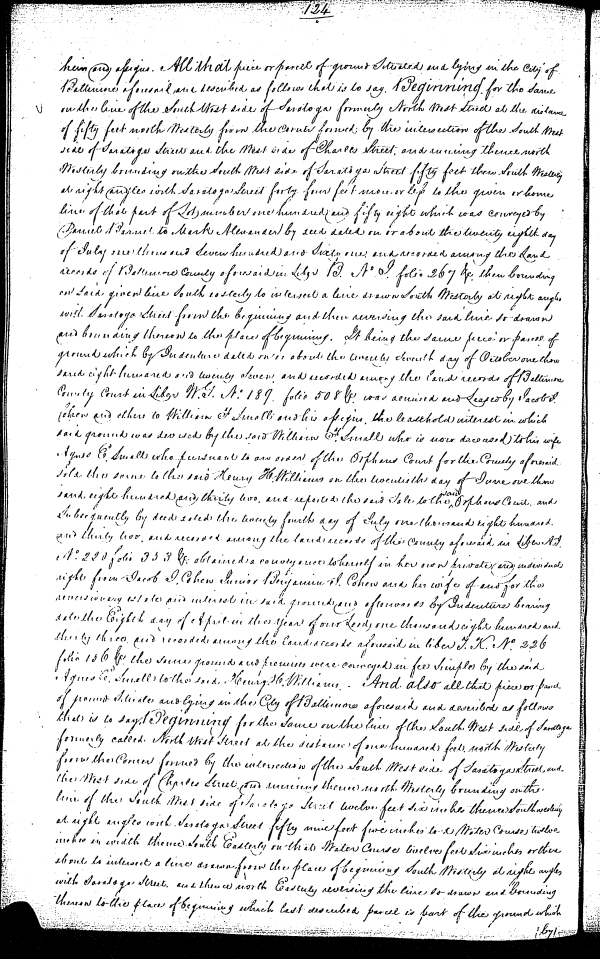 124
heirs and assigns. All that piece or parcel of ground Situated and lying in the City of
Baltimore aforesaid and described as follows that is to say, Beginning for the same
on the line of the South West side of Saratoga formerly North West Street at the distance
of fifty feet north Westerly from the Corner formed by the intersection of the South West
side of Saratoga Street and the West side of Charles Street, and running thence north
Westerly bounding on the South West side of Saratoga Street fifty feet thence South Westerly
at right angles with Saratoga Street forty four feet more or less to the given or home
line of that part of Lot number one hundred and fifty eight which was conveyed by
Daniel to Mark Alexander by deed dated on or about the twenty eighth day
of July one thousand Seven hundred and Sixty one, and recorded among the Land
records of Baltimore County aforesaid in Liber B. No I. folio 267 &c. then bounding
on said given line South easterly to intersect a line drawn South Westerly at right angles
with Saratoga Street from the beginning and then reversing the said line so drawn
and bounding thereon to the place of beginning. It being the same piece or parcel of
ground which by Indenture dated on or about the twenty Seventh day of October one thou
sand eight hundred and twenty Seven, and recorded among the land records of Baltimore
County Court in Liber W.G. No. 189. folio 508 &c. was demised and Leased by Jacob I.
Cohen and others to William F Small and his assigns, the leasehold interest in which
said ground was devised by the said William F. Small who is now deceased to his wife
Agnes E. Small who pursuant to an order of the Orphans Court for the County aforesaid
sold the same to the said Henry H. Williams on the twentieth day of June one thou
sand eight hundred and thirty two, and reported the said Sale to the said Orphans Court, and
Subsequently by deed dated the twenty fourth day of July one thousand eight hundred
and thirty two, and recorded among the land records of the County aforesaid in Liber
No. 220 folio 333 &c. obtained a conveyance to herself in her own private and individual
right from Jacob I. Cohen Junior Benjamin I. Cohen and his wife of and for the
reversionary estate and interest in said ground and afterwards by Indenture bearing
date the Eighth day of April in the Year of our Lord, one thousand eight hundred and
thirty three, and recorded among the land records aforesaid in liber T. K. No. 226
folio 136 &c the same ground and premises were conveyed in fee Simple by the said
Agnes E. Small to the said Henry H. Williams. And also all that piece or parcel
of ground Situate and lying in the City of Baltimore aforesaid and described as follows
that is to say, Beginning for the same on the line of the South West side of Saratoga
formerly called North West Street at the distance of one hundred feet, north Westerly
from the Corner formed by the intersection of the South West side of Saratoga Street, and
the West side of Charles Street, and running thence north Westerly bounding on the
line of the South West side of Saratoga Street twelve feet six inches thence South westerly
at right angles with Saratoga Street fifty nine feet five inches to a Water Course twelve
inches in width thence South Easterly on that Water Course twelve feet Six inches or there
about to intersect a line drawn from the place of beginning South Westerly at right angles
with Saratoga Street, and thence north Easterly reversing the line so drawn and bounding
thereon to the place of beginning which last described parcel is part of the ground which
by